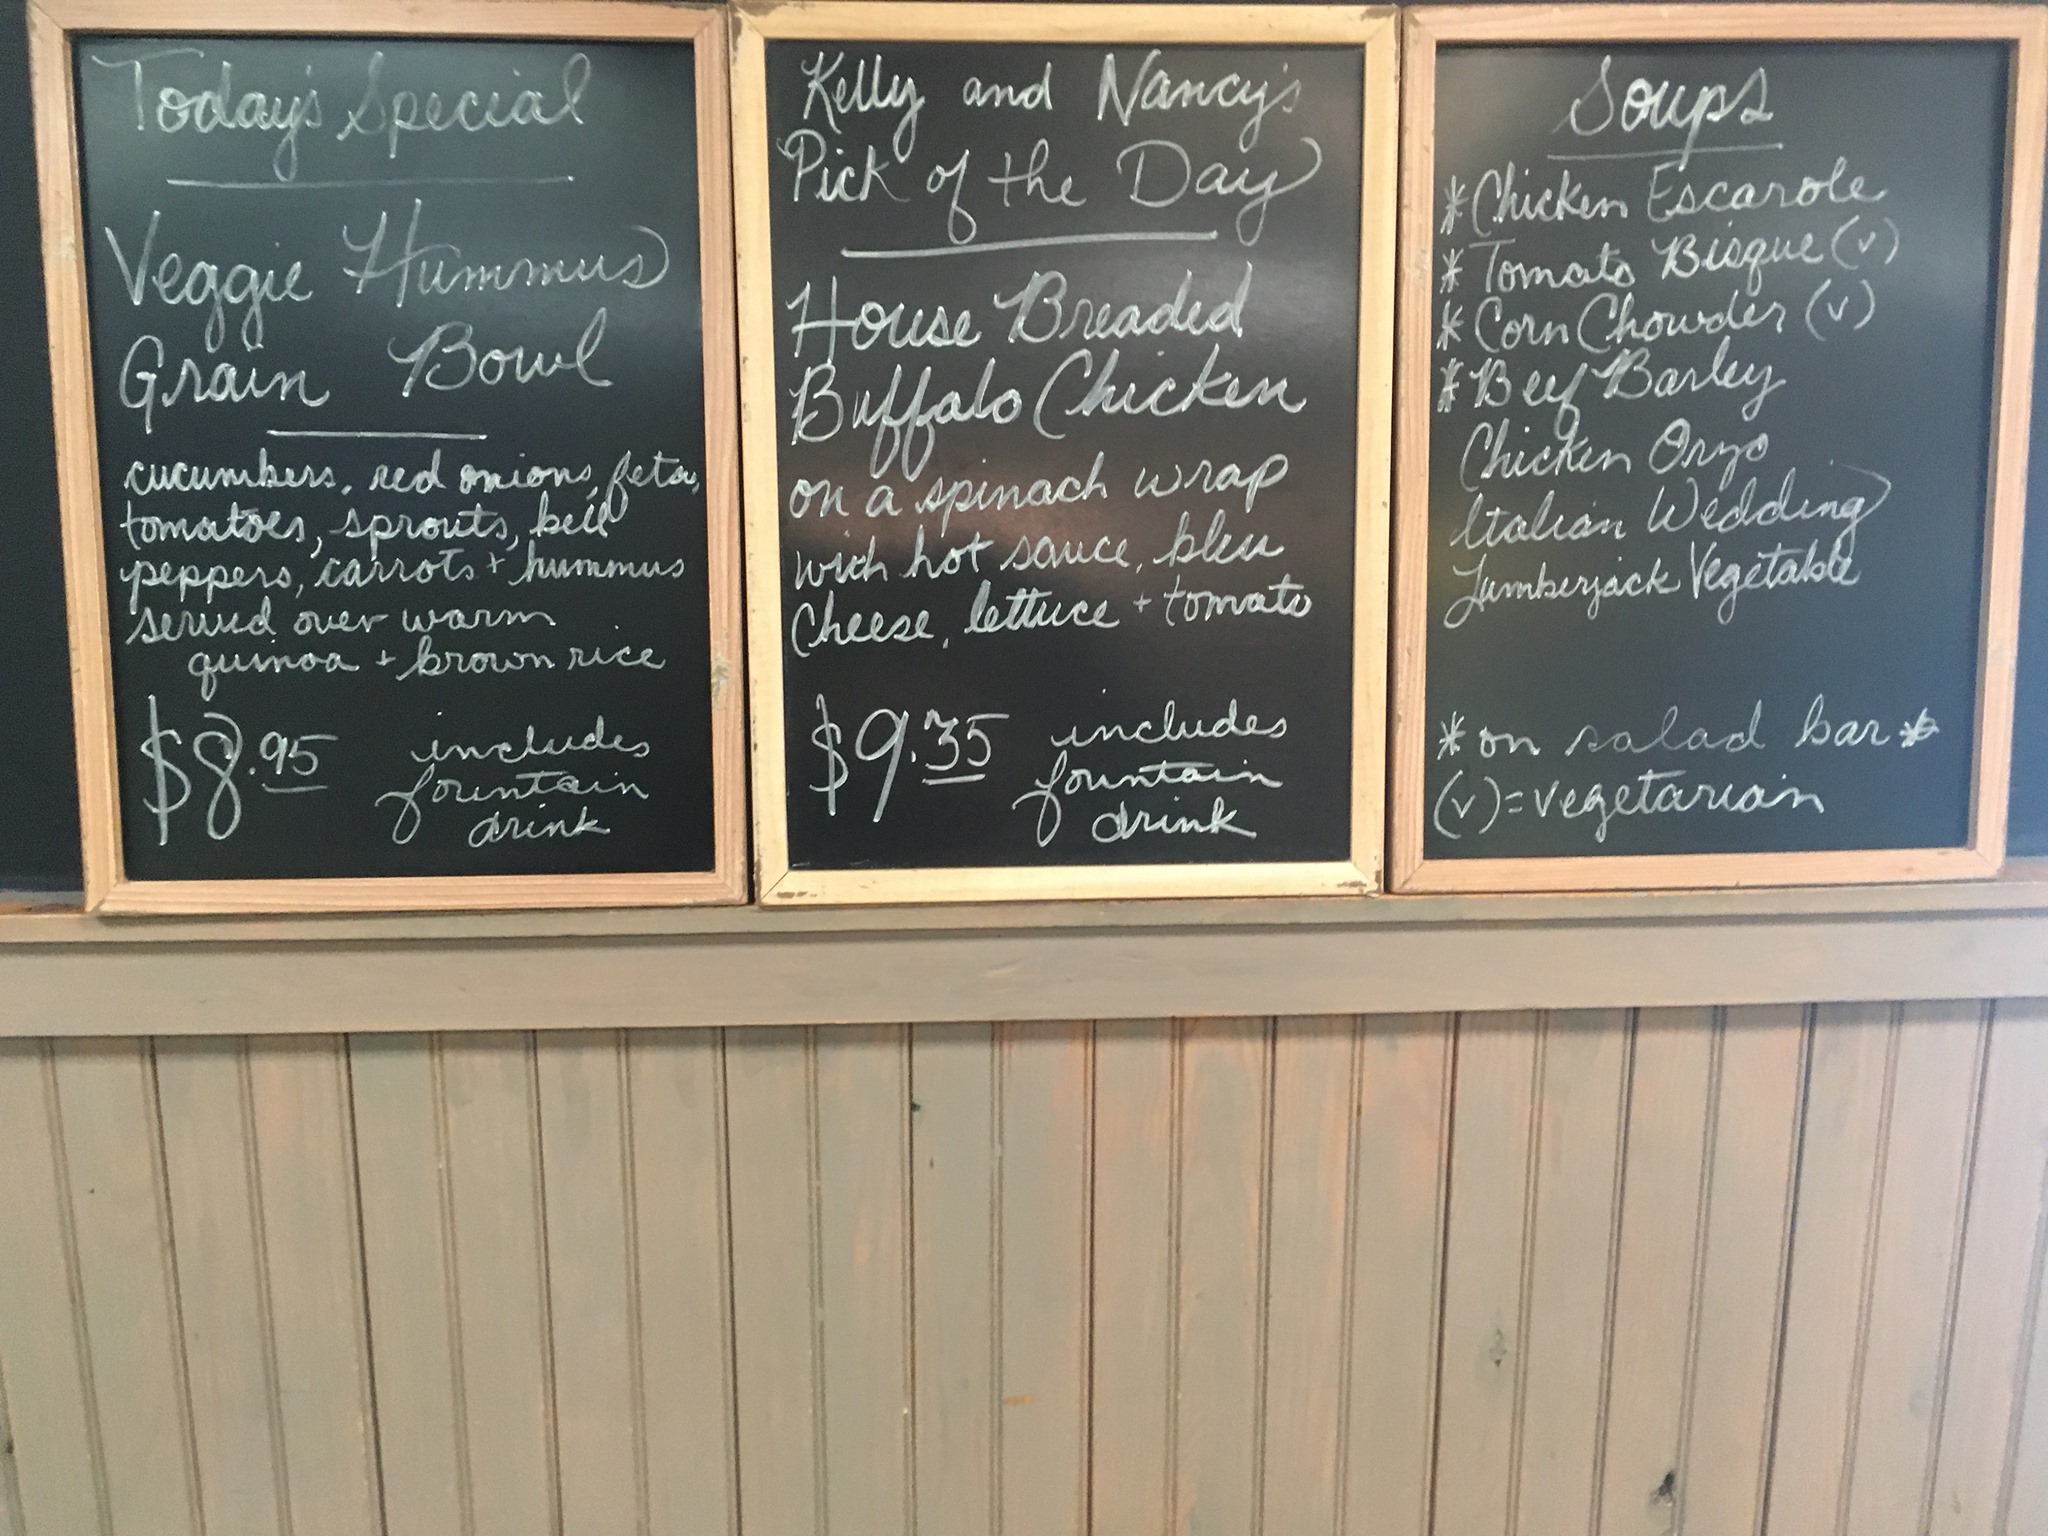 Today's Special
Veggie Hummus
Grain Bowl
cucumbers, red onions, feta,
tomatoes, sprouts, bell
peppers, carrots + hummus
served over warm
quinoa + brown rice
$8.95 includes
fountain
drink
Kelly and Nancy's
Pick of the Day
House Breaded
Buffalo Chicken
on a spinach wrap
with hot sauce, bleu
cheese, lettuce + tomato
$9.35 includes
fountain
drink
Soups
*Chicken Escarole
*Tomato Bisque (v)
*Corn Chowder (v)
*Beef Barley
Chicken Orzo
Italian Wedding
Lumberjack Vegetable
*on salad bar*
(v)=vegetarian